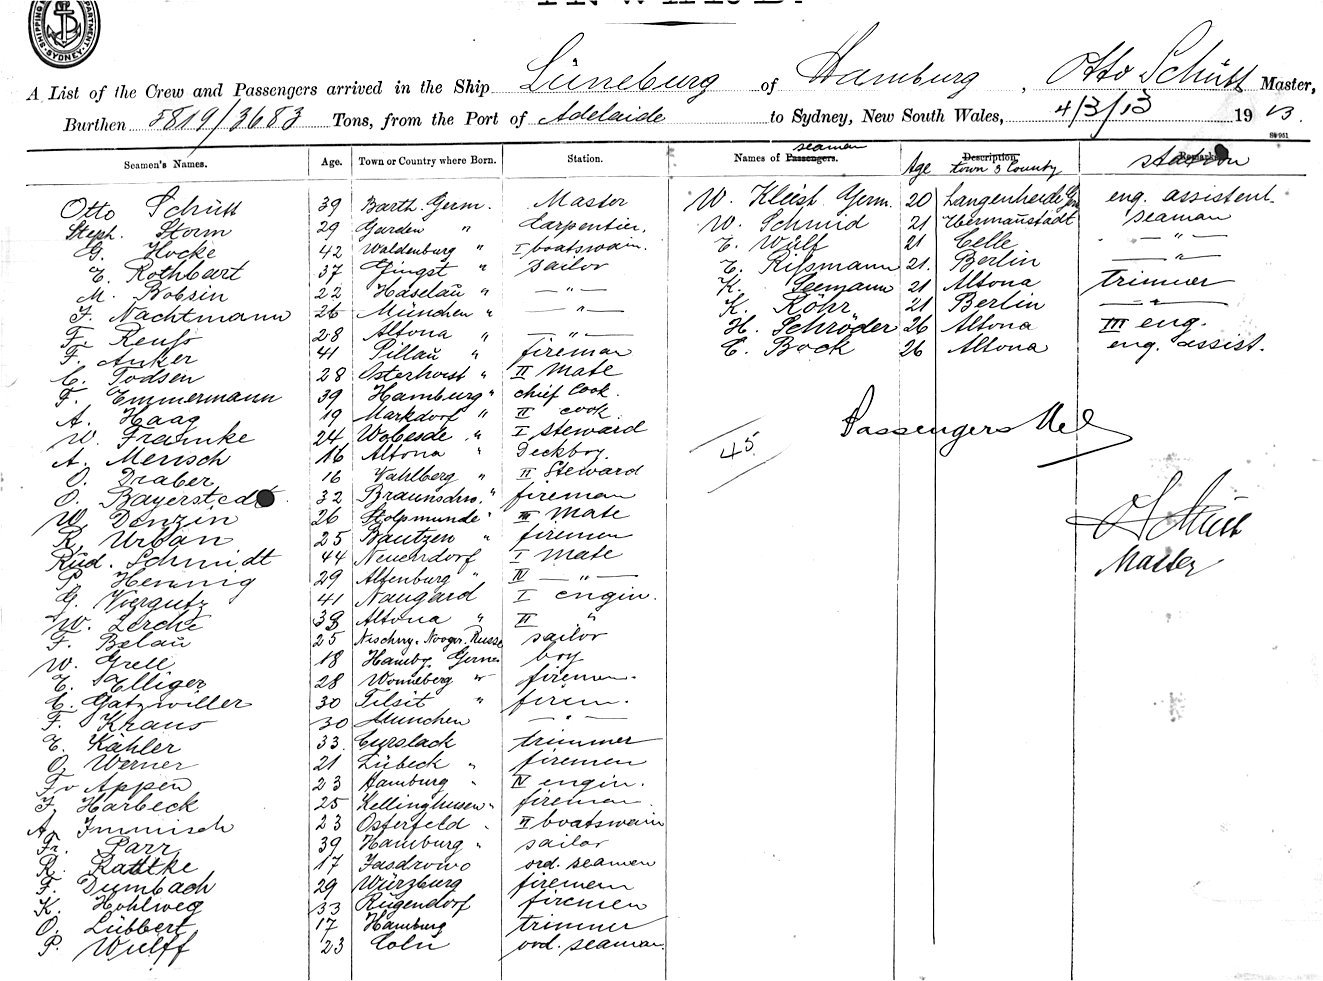 INWARD.
SHIPPING DEPARTMENT. SYDNEY
A List of the Crew and Passengers arrived in the Ship Lüneburg of Hamburg, Otto Schütt Master,
Burthen 5819/3683 Tons, from the Port of Adelaide to Sydney, New South Wales, 4/3/13 1913.
Seamen's Names. Age. Town or Country where Born. Station.
Otto Schütt 39 Barth. Germ. Master
Steph. Storm 29 Garden " Carpentier.
G. Hocke 42 Waldenburg " I boatswain.
E. Rothbart 37 Gingst " Sailor
M. Bobsin 22 Haselau " — " —
J. Nachtmann 26 München " — " —
F. Reuß 28 Altona " — " —
F. Anker 41 Pillau " fireman
C. Todsen 28 Osterhorst " II Mate
F. Emmermann 39 Hamburg " chief Cook.
A. Haag 19 Markdorf " II cook.
W. Framke 24 Wobesde " I steward
A. Mensch 16 Altona " Deckboy.
O. Draber 16 Vahlberg " II Steward
O. Bayerstedt 32 Braunschw. " fireman
W. Denzin 26 Stolpmünde " III Mate
R. Urban 25 Bautzen " firemen
Rud. Schmidt 44 Neuendorf I Mate
P. Hennig 29 Altenburg " IV — " —
G. Voergutz 41 Naugard I engin.
W. Lerche 38 Altona " II "
F. Belau 25 Russe sailor
W. Grell 18 Hambg. Germ. boy
E. Elliger 28 Wonneberg " firemen.
C. Gatzwiller 30 Tilsit " firem.
F. Kraus 30 München — " —
E. Kähler 33 Curslack trimmer
O. Werner 21 Lübeck " firemen
F. v Appen 23 Hamburg " IV engin.
J. Harbeck 25 Kellinghusen " fireman
A. Immisch 23 Osterfeld " II boatswain
Fr. Parr 39 Hamburg " sailor
R. Radtke 17 Jasdrowo ord. seamen
F. Dumbach 29 Würzburg firemem
K. Hohlweg 33 Rügendorf firemen
O. Lübbert 17 Hamburg trimmer
P. Wulff 23 Coln ord. seaman.
Names of Passengers. seamen Age Description, town & County Remarks station
W. Kleist Germ. 20 Langenheide Germ eng. assistent.
W. Schmid 21 Hermanstadt seaman
E. Wulf 21 Celle — " —
E. Rißmann 21. Berlin — " —
K. Seemann 21 Altona trimmer
K. Röhr 21 Berlin — " —
H. Schröder 26 Altona III eng.
C. Bock 26 Altona eng. assist.
Passengers Nel
45
O Schütt
Master